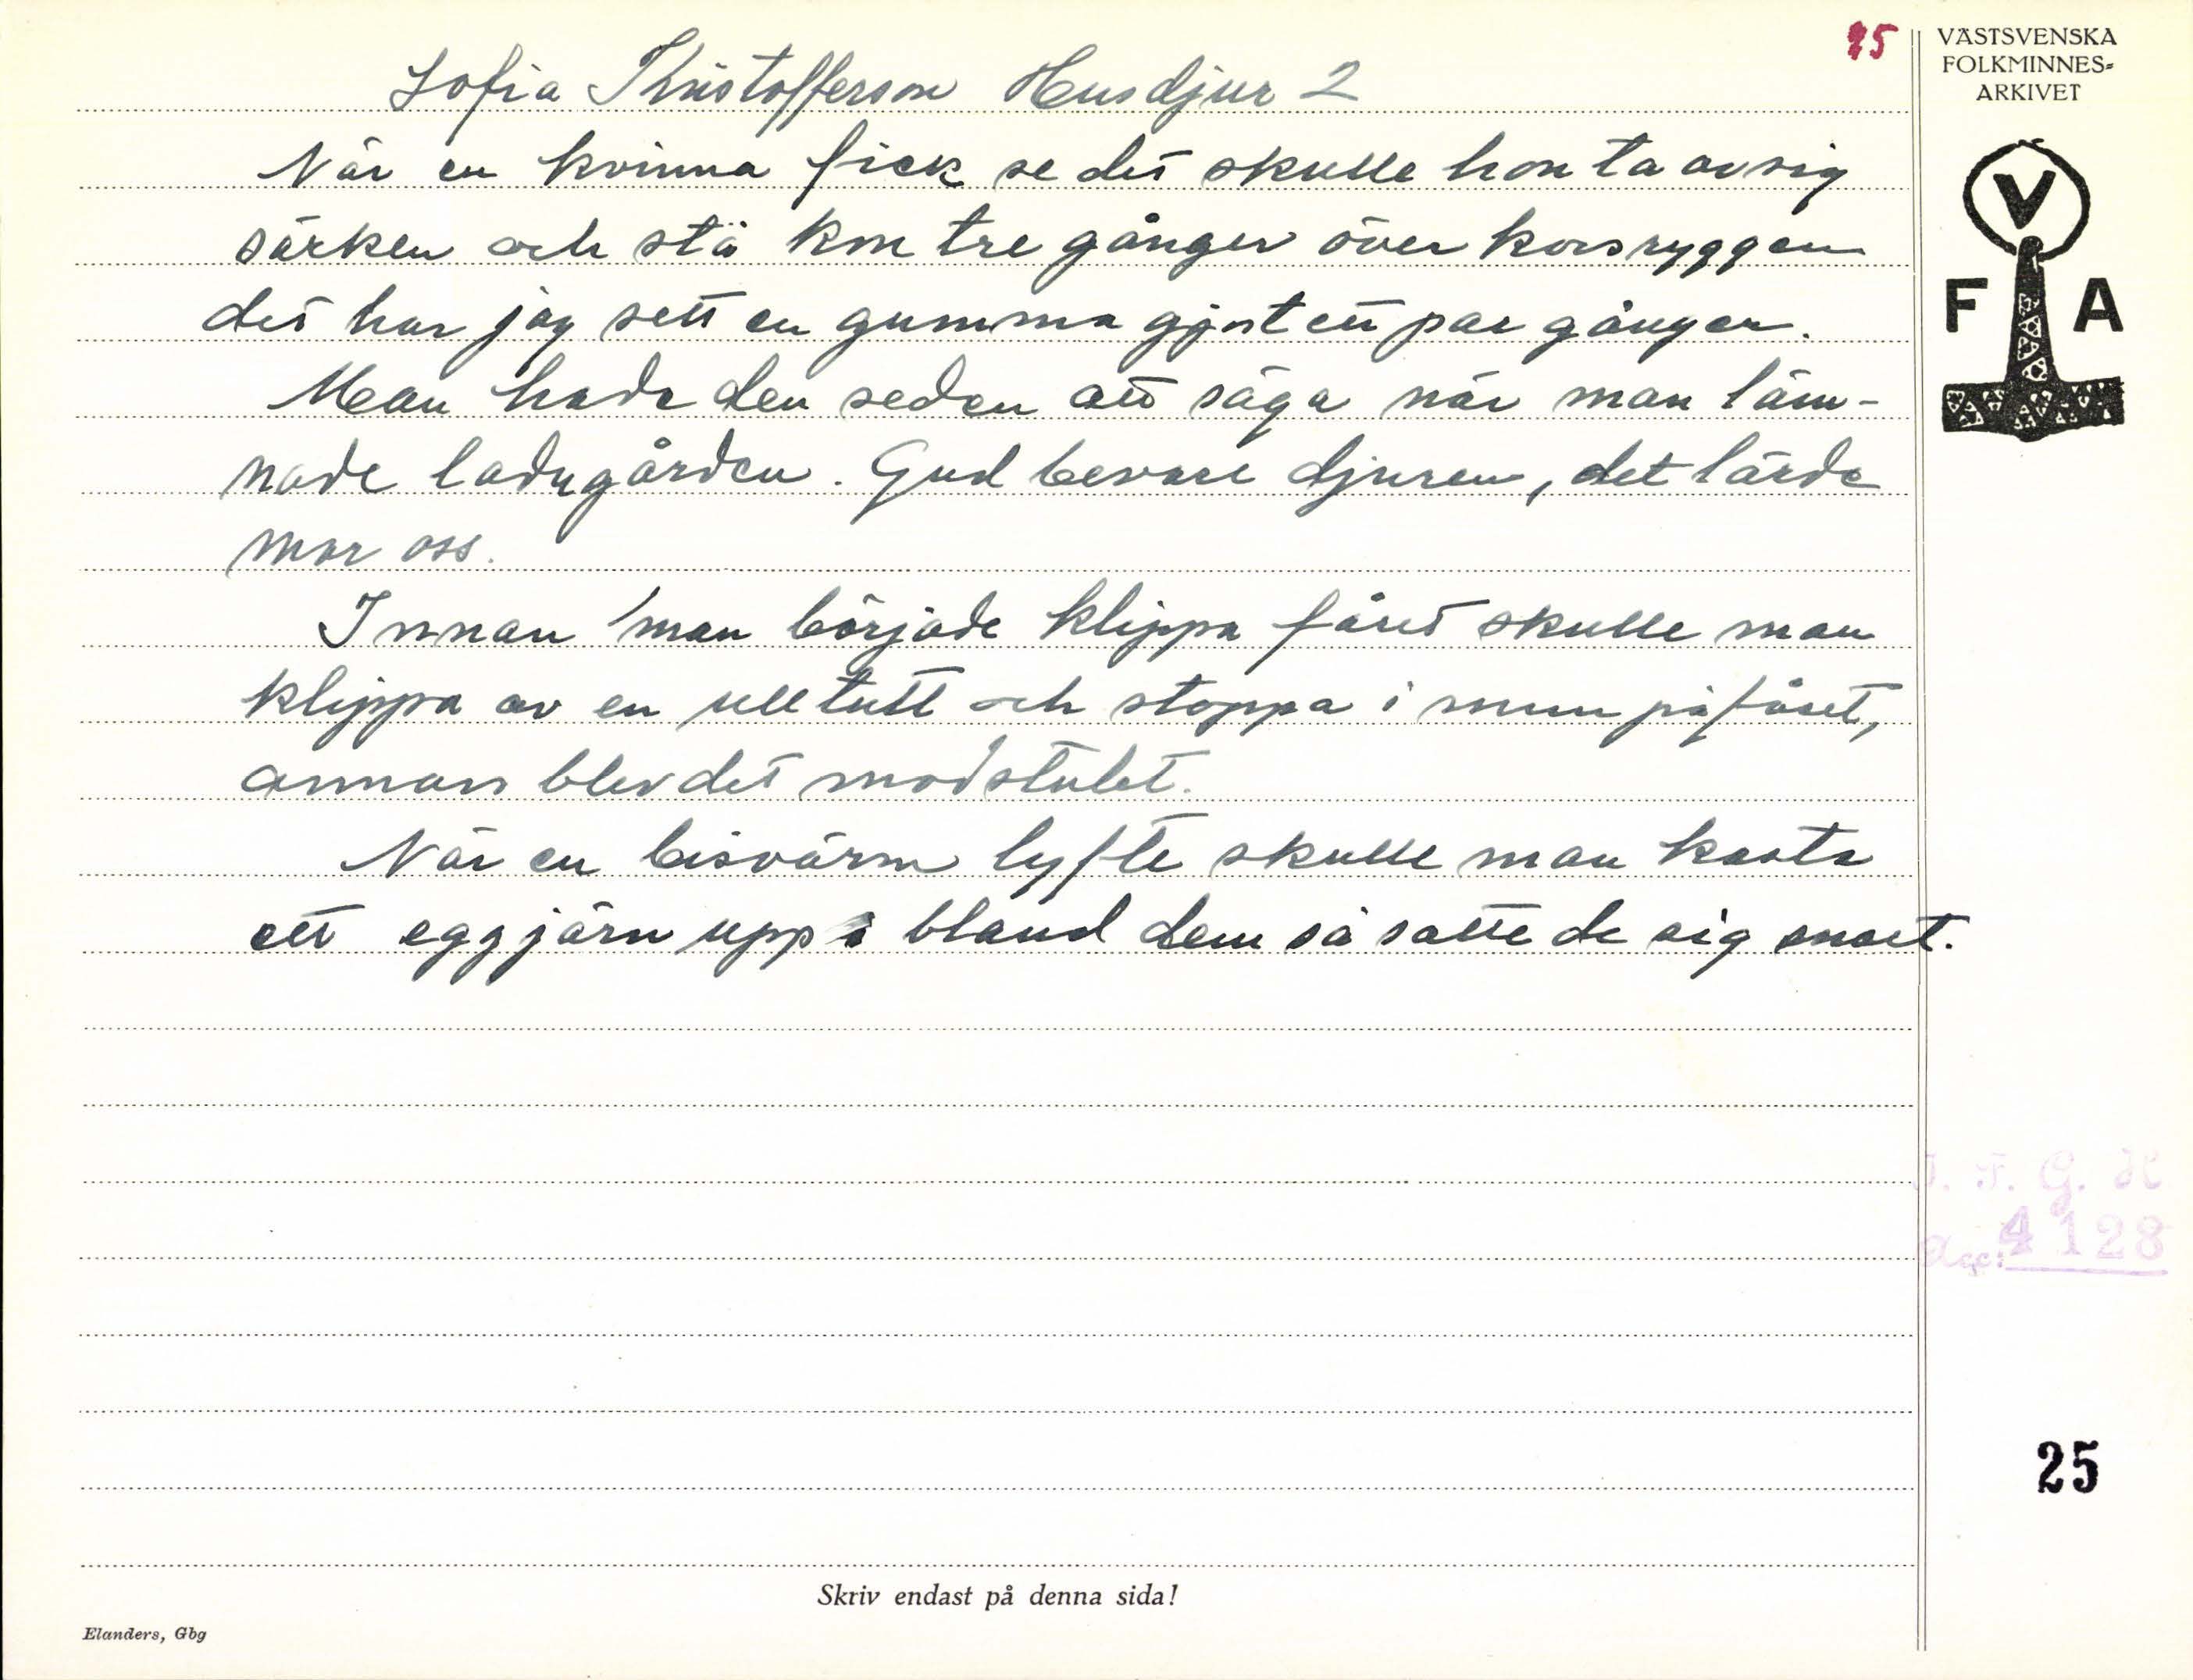 25
VÄSTSVENSKA
FOLKMINNES-
ARKIVET
V
F A
Sofia Kristofferson Husdjur 2
När en kvinna fick se det skulle hon ta av sig
särken och slå kon tre gånger över korsryggen
det har jag sett en gumma gjort ett par gånger.
Man hade den seden att säga när man läm-
nade ladugården. Gud bevare djuren, det lärde
mor oss.
Innan man började klippa fåret skulle man
klippa av en ulltutt och stoppa i mun på fåret,
annars blev det modstulet.
När en bisvärm lyfte skulle man kasta
ett eggjärn upp i bland dem så satte de sig snart.
I. F. G. H
Acc: 4128
25
Skriv endast på denna sida!
Elanders, Gbg